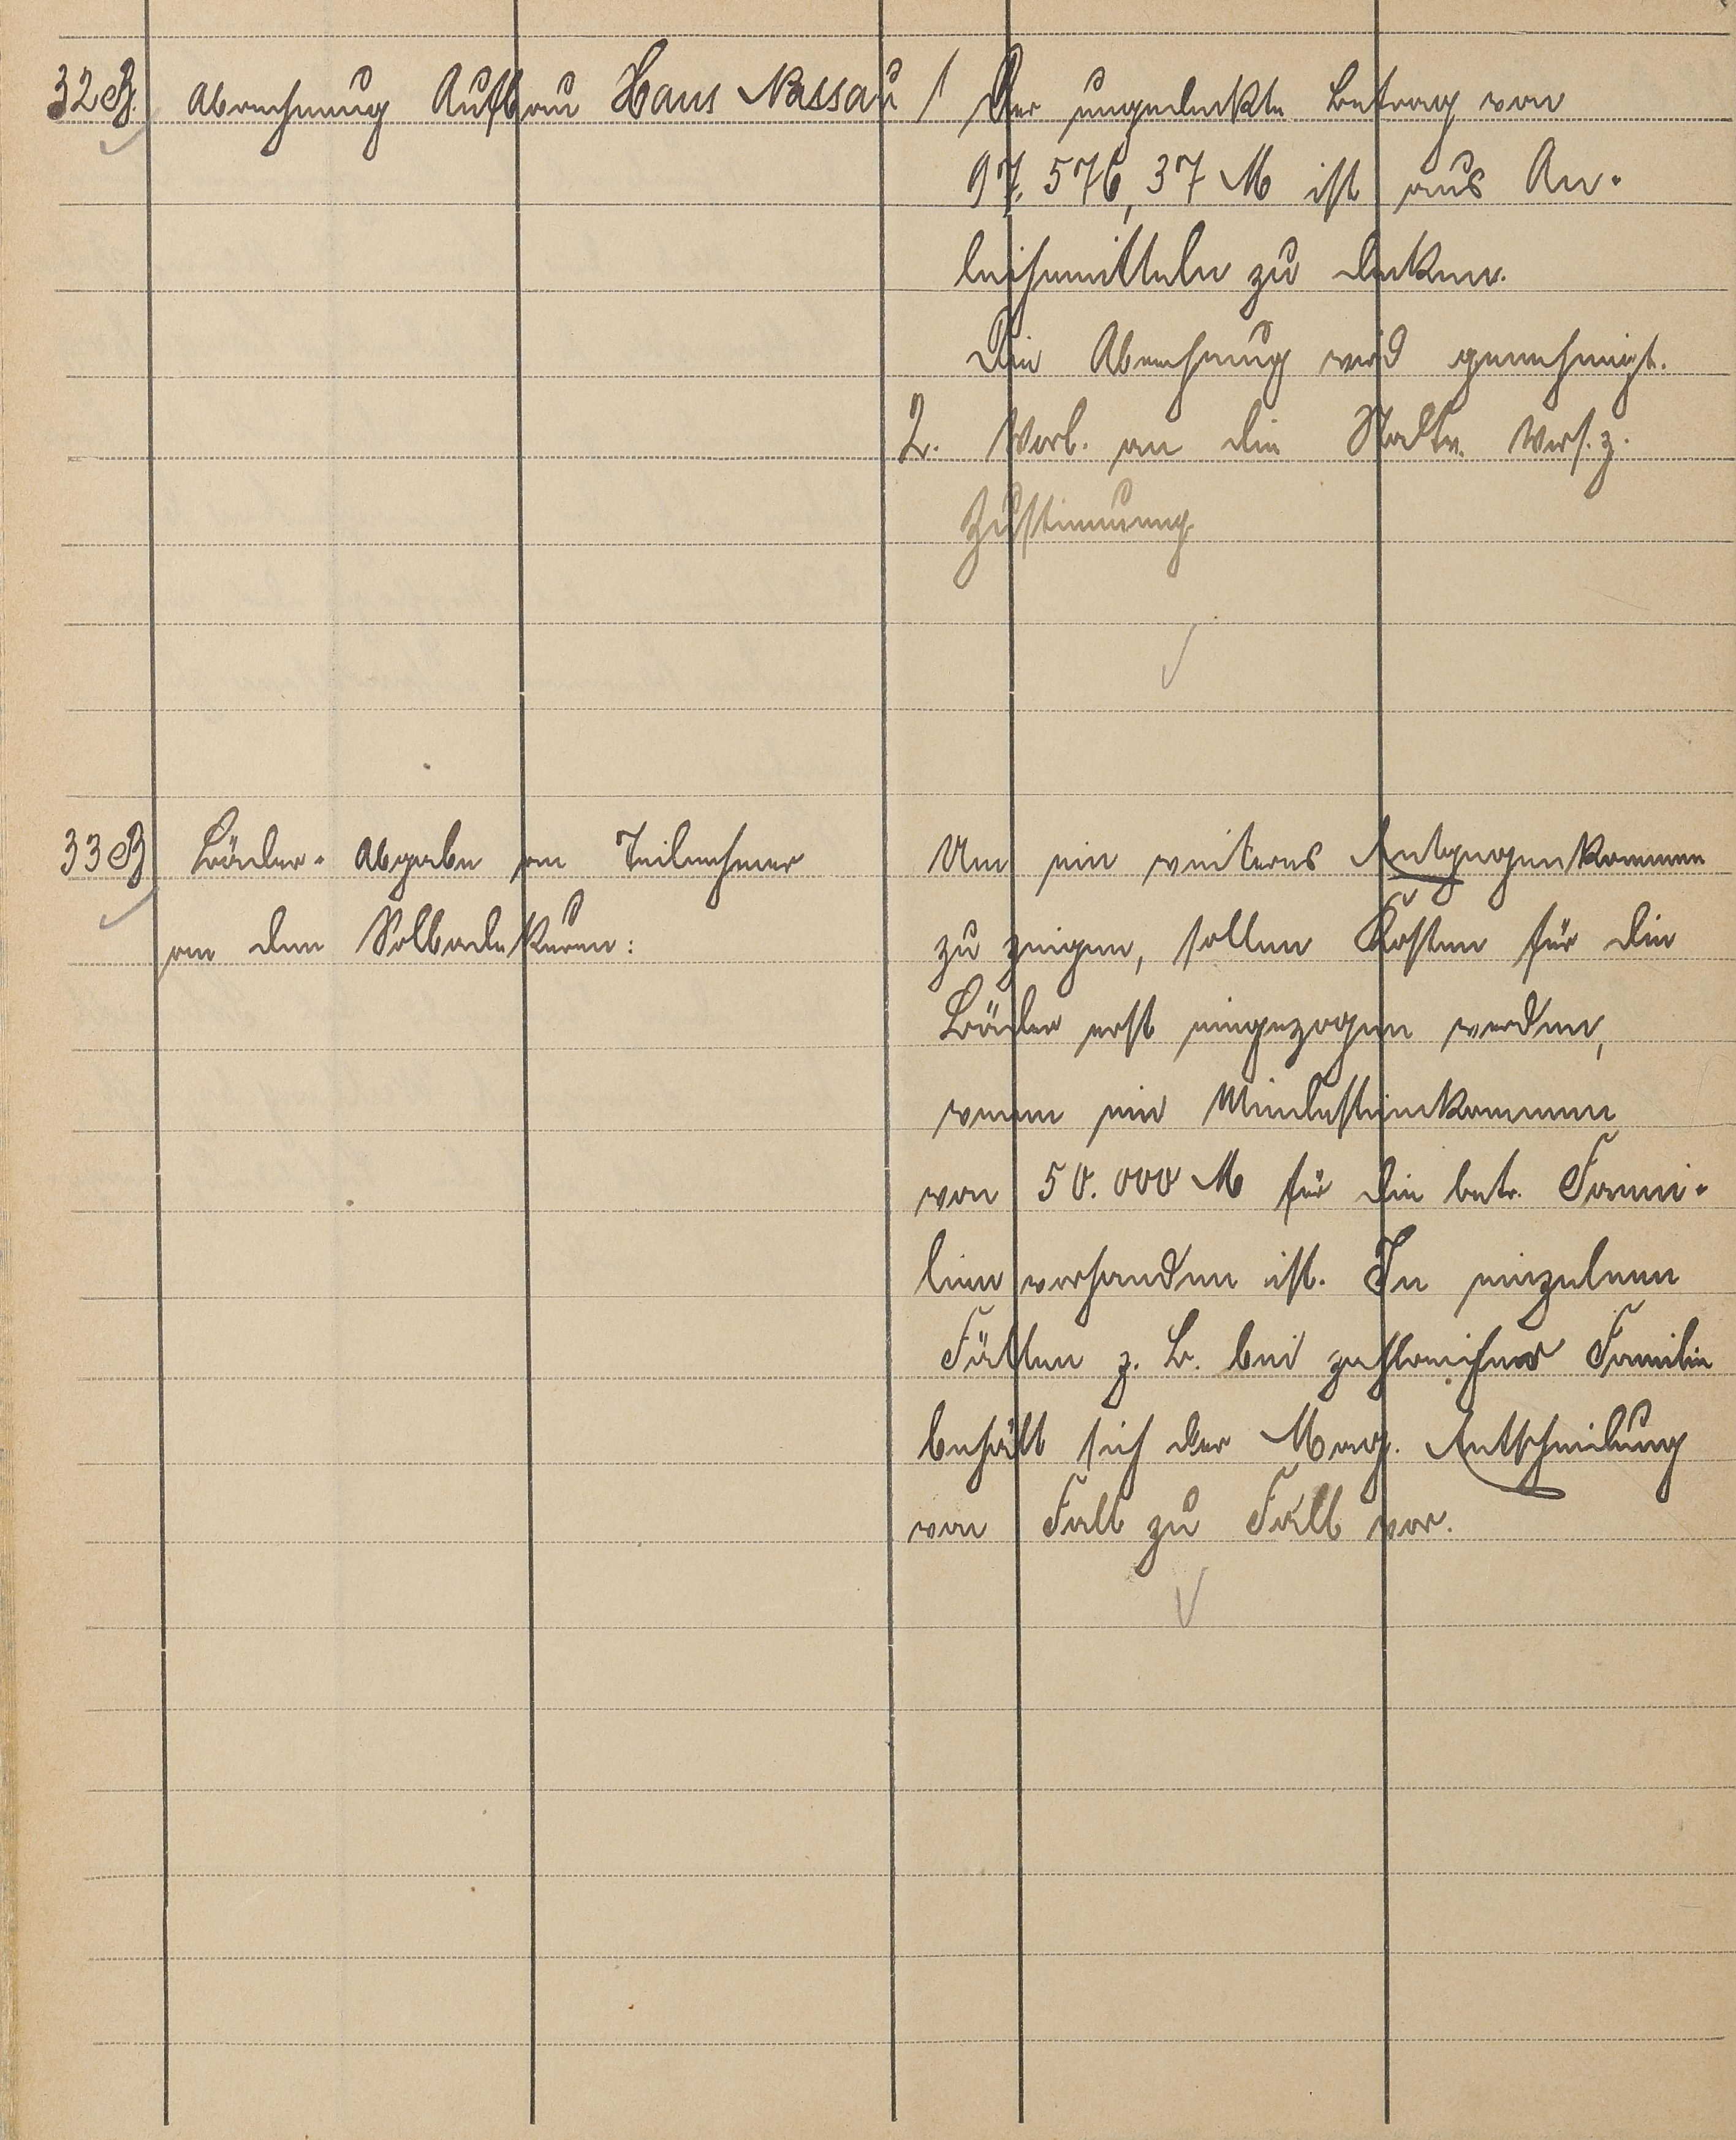 32 B. Abrechnung Aufbau Haus Nassau
1 Der ungedeckte Betrag von
97.576,37 M ist aus An-
leihemitteln zu decken.
Die Abrechnung wird genehmigt.
2. Vorl. an die Stadtv. Vers. z.
Zustimmung
33 B Bäder-Abgabe an Teilnehmer
an den Solbadekuren:
Um ein weiteres Entgegenkommen
zu zeigen, sollen Kosten für die
Bäder erst eingezogen werden,
wenn ein Mindesteinkommen
von 50.000 M für die betr. Fami-
lien vorhanden ist. In einzelnen
Fällen z. B. bei zahlreicher Familie
behält sich der Mag. Entscheidung
von Fall zu Fall vor.